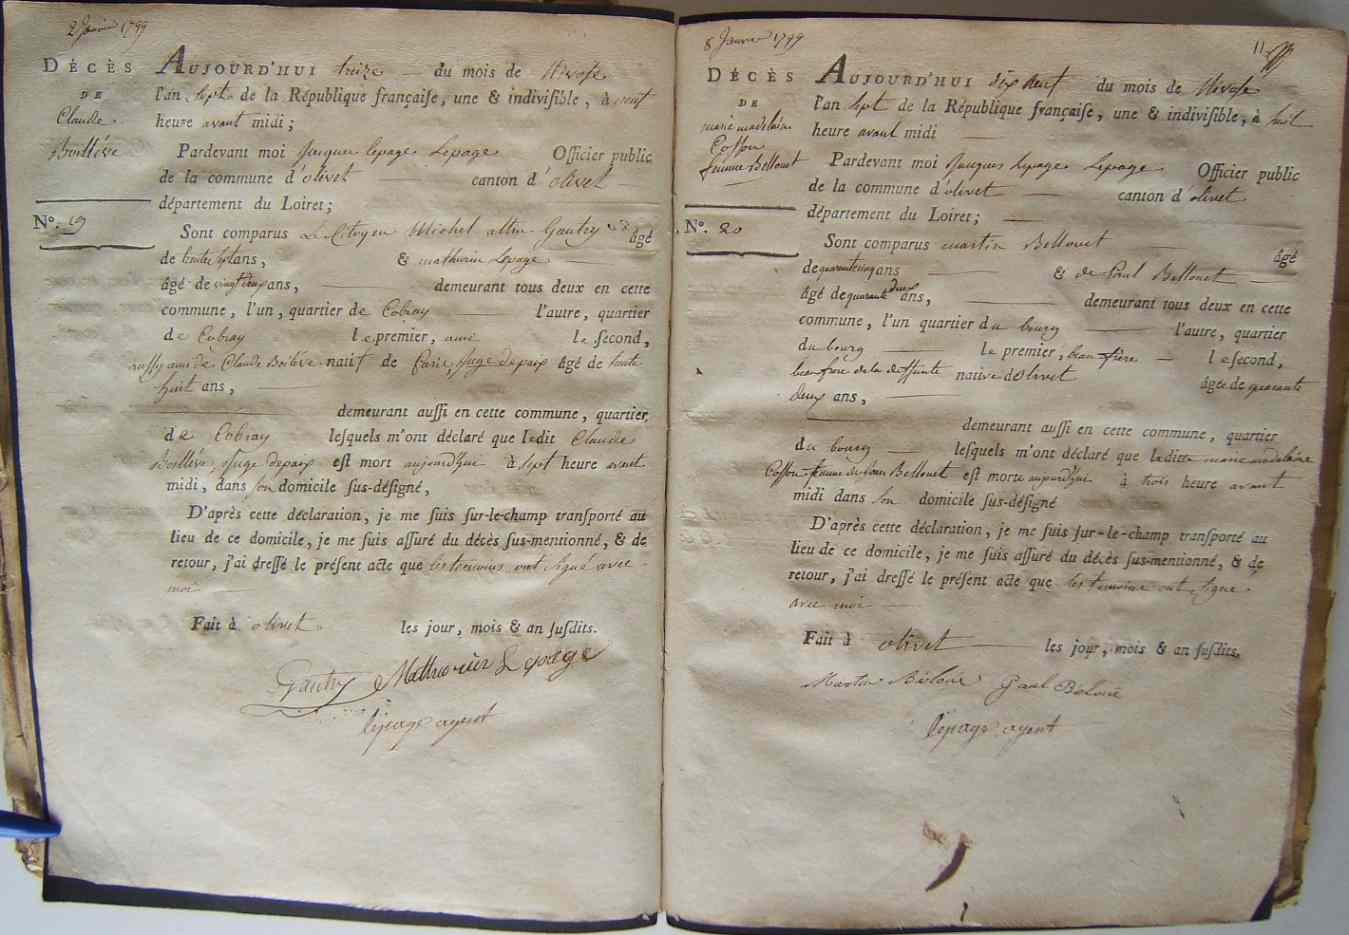 2 Janvier 1799
DÉCÈS
DE
Claude
Boillève
N°. 19
AUJOURD'HUI treize du mois de Nivose
l'an sept de la République françaiſe, une & indiviſible, à neuf
heure avant midi ;
Pardevant moi Jacques lepage Lepage Officier public
de la commune d'olivet canton d'olivet
département du Loiret ;
Sont comparus Le Citoyen Michel Gautry âgé
de ans, & mathurin Lepage
âgé de ans, demeurant tous deux en cette
commune, l'un, quartier de Cobray l'autre, quartier
de Cobray le premier, ami le ſecond,
auſſy ami de Claude natif de juge depaix âgé de trente
huit ans,
demeurant auſſi en cette commune, quartier
de Cobray leſquels m'ont déclaré que ledit Claude
Boillève juge depaix eſt mort aujourd'hui à sept heure avant
midi, dans ſon domicile ſus-déſigné,
D'après cette déclaration, je me ſuis ſur-le-champ tranſporté au
lieu de ce domicile, je me ſuis aſſuré du décès ſus-mentionné, & de
retour, j'ai dreſſé le préſent acte que les temoins ont signé avec
moi
Fait à olivet les jour, mois & an ſuſdits.
Gautry Mathurin Lepage
lepage agent
8 Janvier 1799
11
DÉCÈS
DE
marie madelaine
Coſſon
femme Bellouet
N°. 20
AUJOURD'HUI dix neuf du mois de Nivose
l'an sept de la République françaiſe, une & indiviſible, à huit
heure avant midi
Pardevant moi Jacques lepage Lepage Officier public
de la commune d'olivet canton d'olivet
département du Loiret ;
Sont comparus martin Bellouet âgé
de quarante cinq ans & de Paul Bellouet
âgé de quarante deux ans, demeurant tous deux en cette
commune, l'un quartier du bourg l'autre, quartier
du bourg le premier, beau frère le ſecond,
beau frere de la deffunte native d'Olivet âgée de quarante
deux ans,
demeurant auſſi en cette commune, quartier
du bourg leſquels m'ont déclaré que laditte marie madelaine
Coſſon femme Bellouet eſt morte aujourd'hui à trois heure avant
midi dans ſon domicile ſus-déſigné
D'après cette déclaration, je me ſuis ſur-le-champ tranſporté au
lieu de ce domicile, je me ſuis aſſuré du décès ſus-mentionné, & de
retour, j'ai dreſſé le préſent acte que les temoins ont signe
avec moi
Fait à olivet les jour, mois & an ſuſdits.
Martin Béloué Paul Béloué
lepage agent